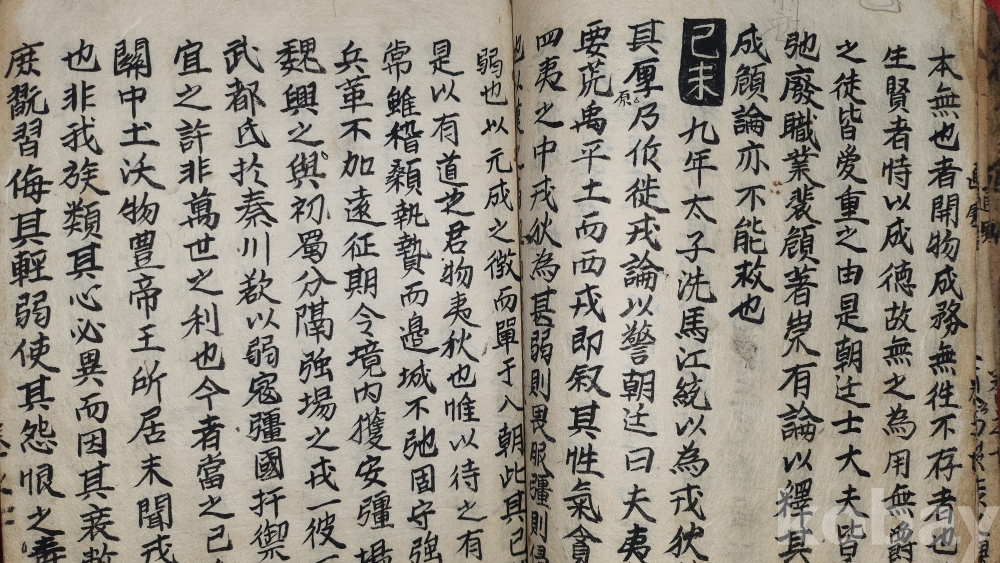 本無也者開物成務無徃不存者也
生賢者恃以成德故無之為用無爵
之徒皆愛重之由是朝廷士大夫皆
弛廢職業裴頠著崇有論以釋其
成頠論亦不能救也
己未九年太子洗馬江統以為戎狄
其厚乃作徙戎論以警朝廷曰夫夷
原
要荒禹平土而西戎即叙其性氣貪
四夷之中戎狄為甚弱則畏服彊則侵
弱也以元成之徵而單于入朝此其已
是以有道之君物夷狄也惟以待之有
常雖稽顙執贄而邊城不弛固守強
兵革不加遠征期令境內獲安疆場
魏興之與初蜀分隔強場之戎一彼一
武都氐於秦川欲以弱寇彊國扞禦
宜之許非萬世之利也今者當之已
關中土沃物豊帝王所居未聞戎
也非我族類其心必異而因其衰敝
庶翫習侮其輕弱使其怨恨之毒
kobay